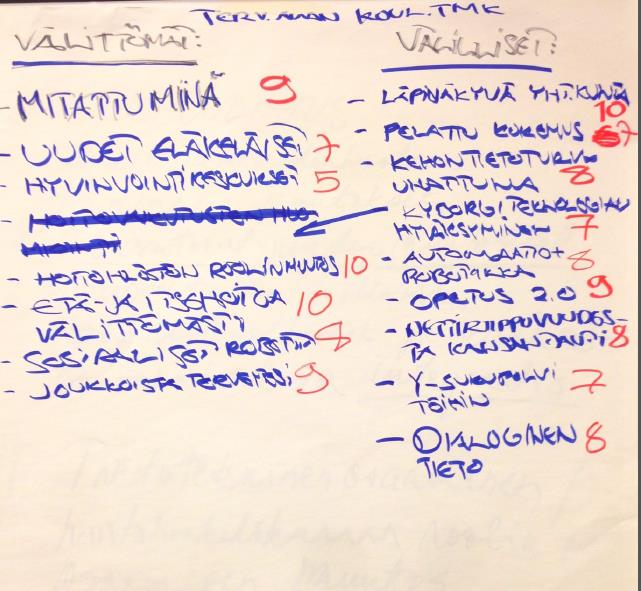 TERV.ALAN KOUL.TMK
VÄLITTÖMÄT:
- MITATTU MINÄ 9
- UUDET ELÄKELÄISET 7
- HYVINVOINTIKESKUKSET 5
- HOITOHLÖSTÖN ROOLIN MUUTOS 10
- ETÄ- JA ITSEHOITOA 10
VÄLITTÖMÄSTI
- SOSIAALISET ROBOTIT 8
- JOUKKOISTA TERVEYTESI 9
VÄLILLISET:
- LÄPINÄKYVÄ YHT.KUNTA
10
- PELATTU KOKEMUS 7
- KEHON TIETOTURVA
UHATTUNA 8
KYBORGITEKNOLOGIAN
HYVÄKSYMINEN 7
- AUTOMAATIO+ 8
ROBOTIIKKA
- OPETUS 2.0 9
- NETTIRIIPPUVUUDES-
TA KANSANTAUTI 8
- Y-SUKUPOLVI 7
TÖIHIN
- DIALOGINEN 8
TIETO